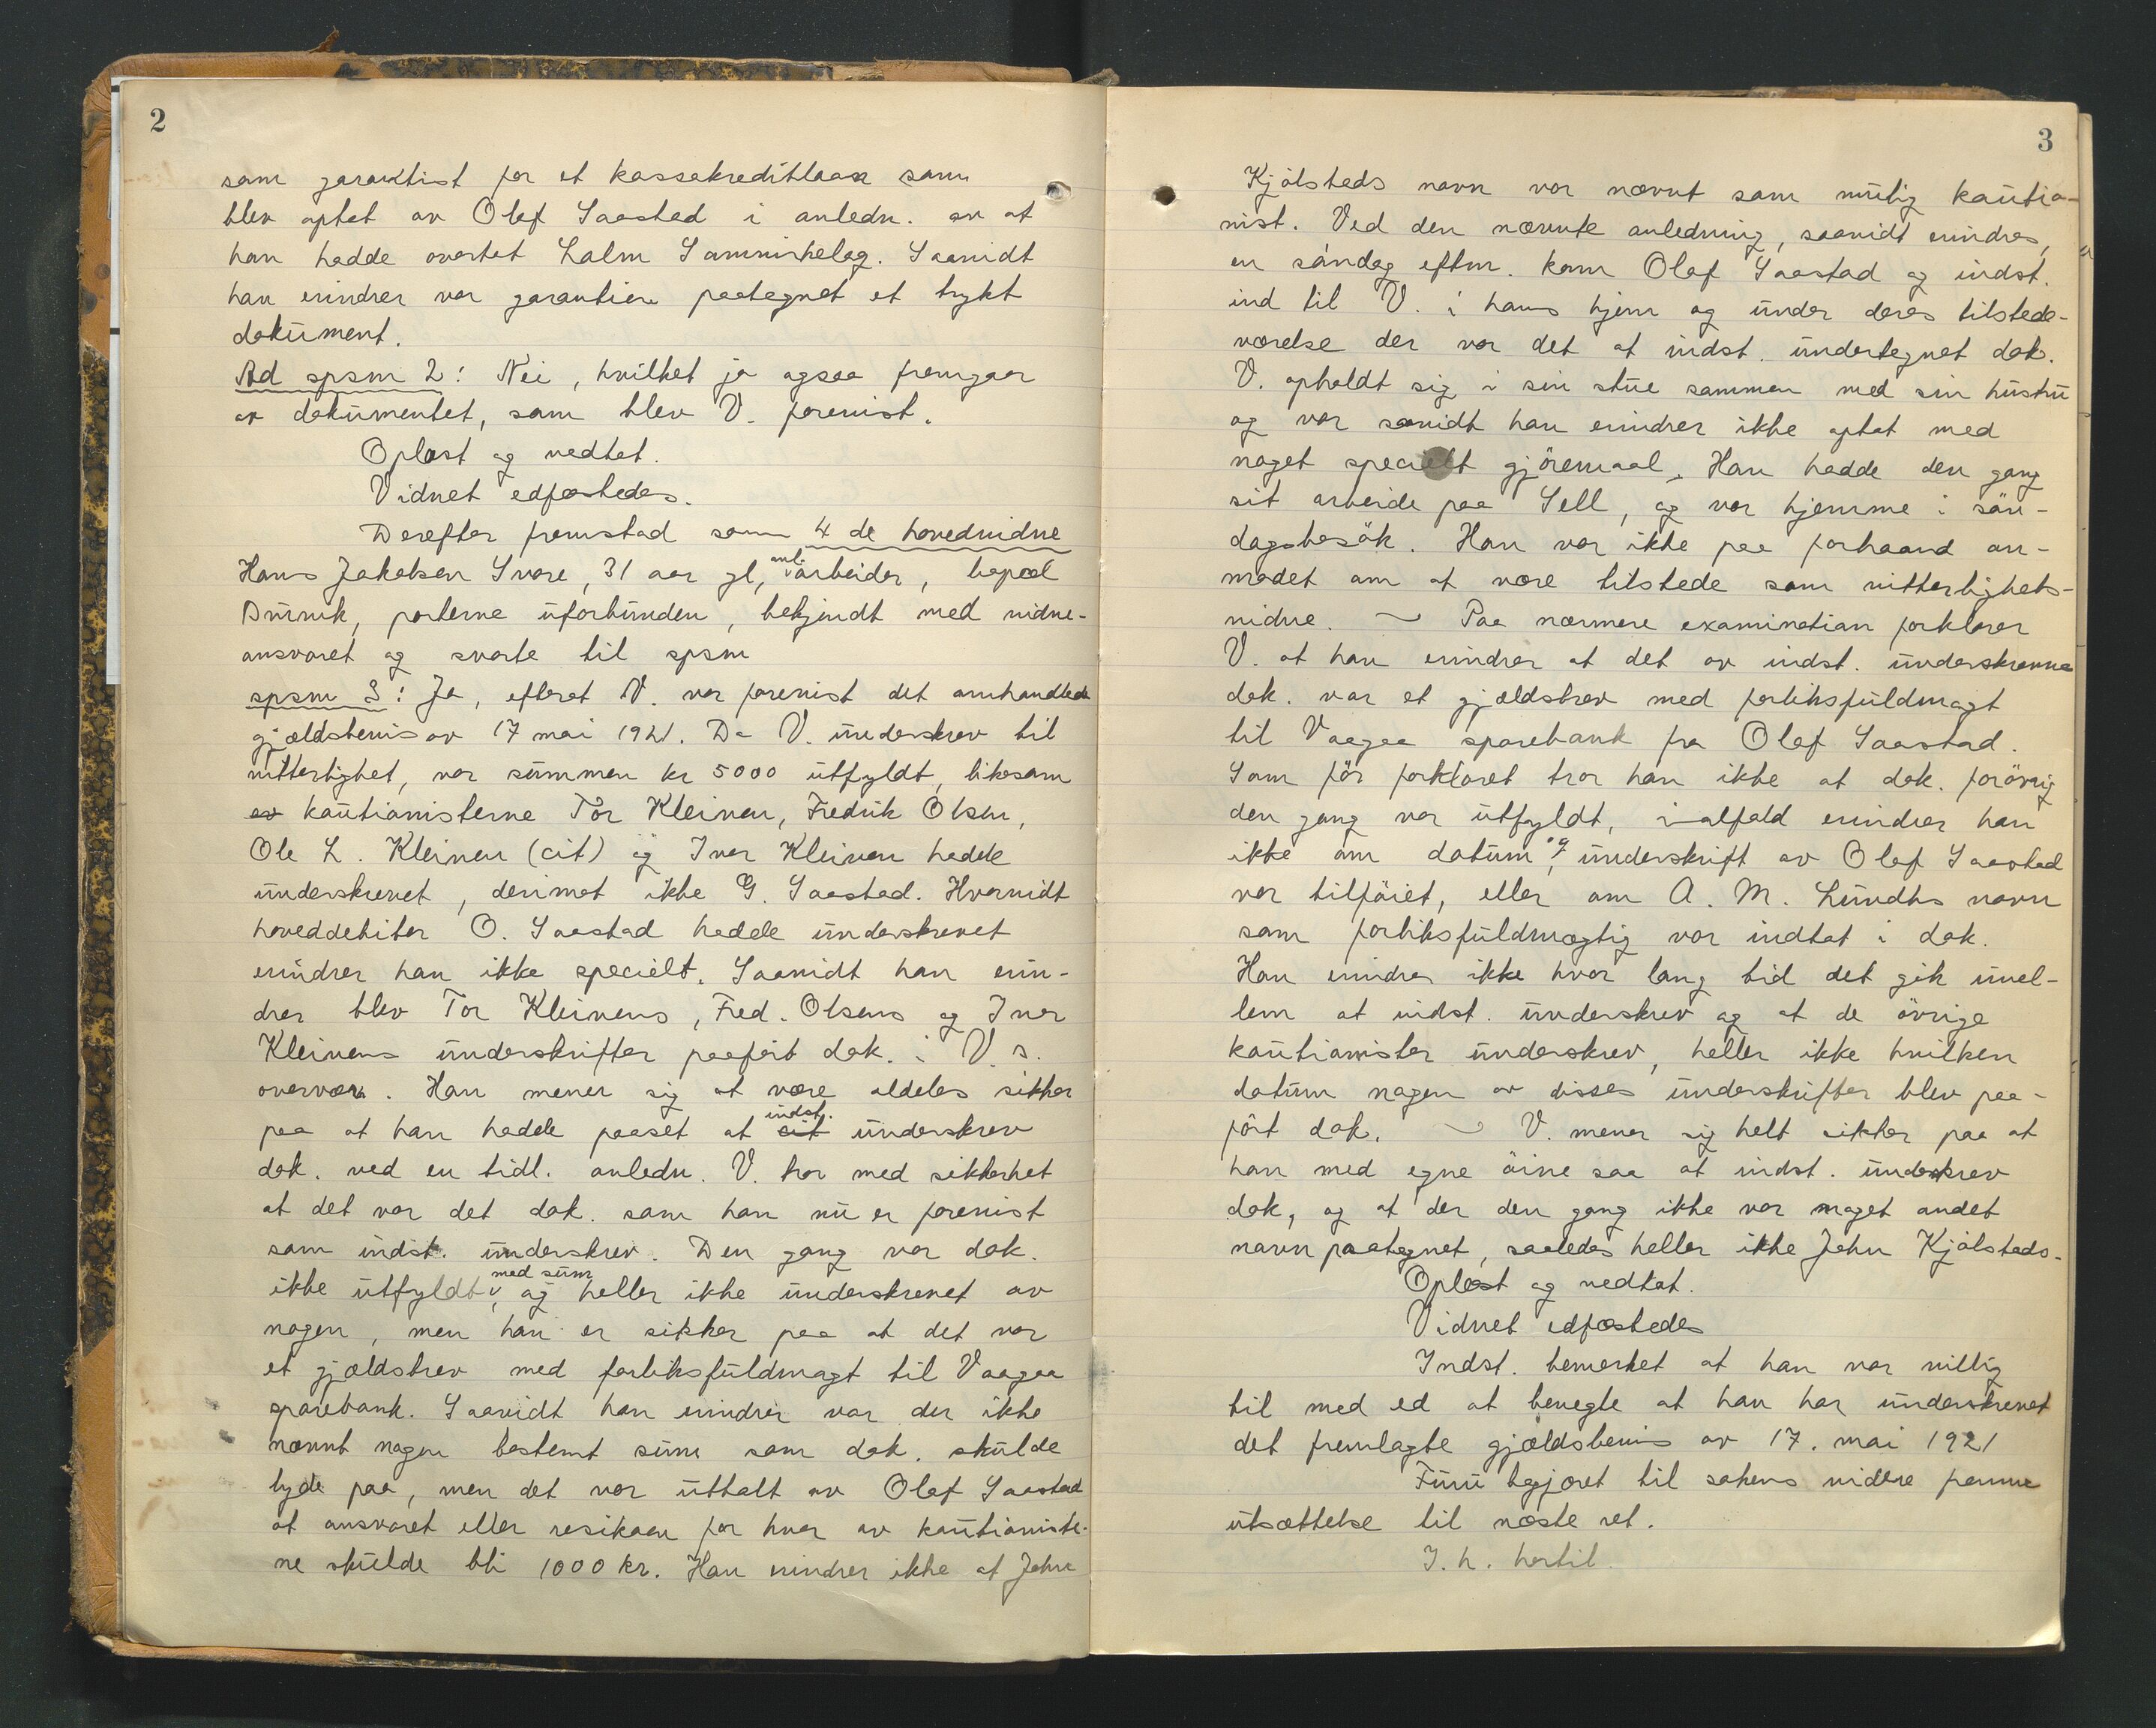 2
som garantist for et kassakreditlaan som
blev optat av Olaf Saastad i anledn. av at
han hadde overtat Lalm Samvirkelag. Saavidt
han erindrer var garantien paategnet et trykt
dokument.
Ad spsm 2: Nei, hvilket jo ogsaa fremgaar
av dokumentet, som blev V. forevist.
Oplæst og vedtat.
Vidnet edfæstedes.
Derefter fremstod som 4 de hovedvidne
Hans Jakobsen Svare, 31 aar gl, anl. arbeider, bopæl
parterne uforbunden, bekjendt med vidne-
ansvaret og svarte til spsm
spsm 3: Ja, efterat V. var forevist det omhandlede
gjældsbevis av 17 mai 1921. Da V. underskrev til
vitterlighet, var summen kr 5000 utfyldt, likesom
av kautionisterne Tor Kleiven, Fredrik Olsen,
Ole L. Kleiven (cit) og Ivar Kleiven hadde
underskrevet, derimot ikke G. Saastad. Hvorvidt
hoveddebitor O. Saastad hadde underskrevet
erindrer han ikke specielt. Saavidt han erin-
drer blev Tor Kleivens, Fred. Olsens og Ivar
Kleivens underskrifter paaført dok. i V.s.
overvær. Han mener sig at være aldeles sikker
paa at han hadde paaset at cit indst. underskrev
dok. ved en tidl. anledn. V. tror med sikkerhet
at det var det dok. som han nu er forevist
som indst. underskrev. Den gang var dok.
ikke utfyldt med sum, og heller ikke underskrevet av
nogen, men han er sikker paa at det var
et gjældsbrev med forliksfuldmagt til Vaagaa
sparebank. Saavidt han erindrer var der ikke
nævnt nogen bestemt sum som dok. skulde
lyde paa, men det var uttalt av Olaf Saastad
at ansvaret eller resikoen for hver av kautioniste-
ne skulde bli 1000 kr. Han erindrer ikke at John
3
Kjølsteds navn var nævnt som mulig kautio-
nist. Ved den nævnte anledning, saavidt erindres,
en søndag eftm. kom Olaf Saastad og indst.
ind til V. i hans hjem og under deres tilstede-
værelse der var det at indst. undertegnet dok.
V. opholdt sig i sin stue sammen med sin hustru
og var saavidt han erindrer ikke optat med
noget specielt gjøremaal. Han hadde den gang
sit arbeide paa Sell, og var hjemme i søn-
dagsbesøk. Han var ikke paa forhaand an-
modet om at være tilstede som vitterlighets-
vidne. ~ Paa nærmere examination forklarer
V. at han erindrer at det av indst. underskrevne
dok. var et gjældsbrev med forliksfuldmagt
til Vaagaa sparebank fra Olaf Saastad.
Som før forklaret tror han ikke at dok. forøvrig
den gang var utfyldt, ialfald erindrer han
ikke om datum og underskrift av Olaf Saastad
var tilføiet, eller om A. M. Lundhs navn
som forliksfuldmægtig var indtat i dok.
Han erindrer ikke hvor lang tid det gik imel-
lem at indst. underskrev og at de øvrige
kautionister underskrev, heller ikke hvilken
datum nogen av disses underskrifter blev paa-
ført dok. ~ V. mener sig helt sikker paa at
han med egne øine saa at indst. underskrev
dok, og at der den gang ikke var noget andet
navn paategnet, saaledes heller ikke John Kjølsteds.
Oplæst og vedtat.
Vidnet edfæstedes
Indst. bemerket at han var villig
til med ed at benegte at han har underskrevet
det fremlagte gjældsbevis av 17. mai 1921
til sakens videre fremme
utsættelse til næste ret.
I. h. hertil.